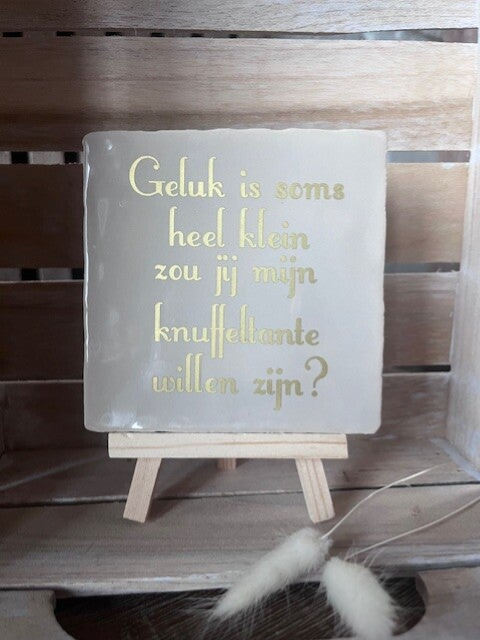 Geluk is soms
heel klein
zou jij mijn
knuffeltante
willen zijn?